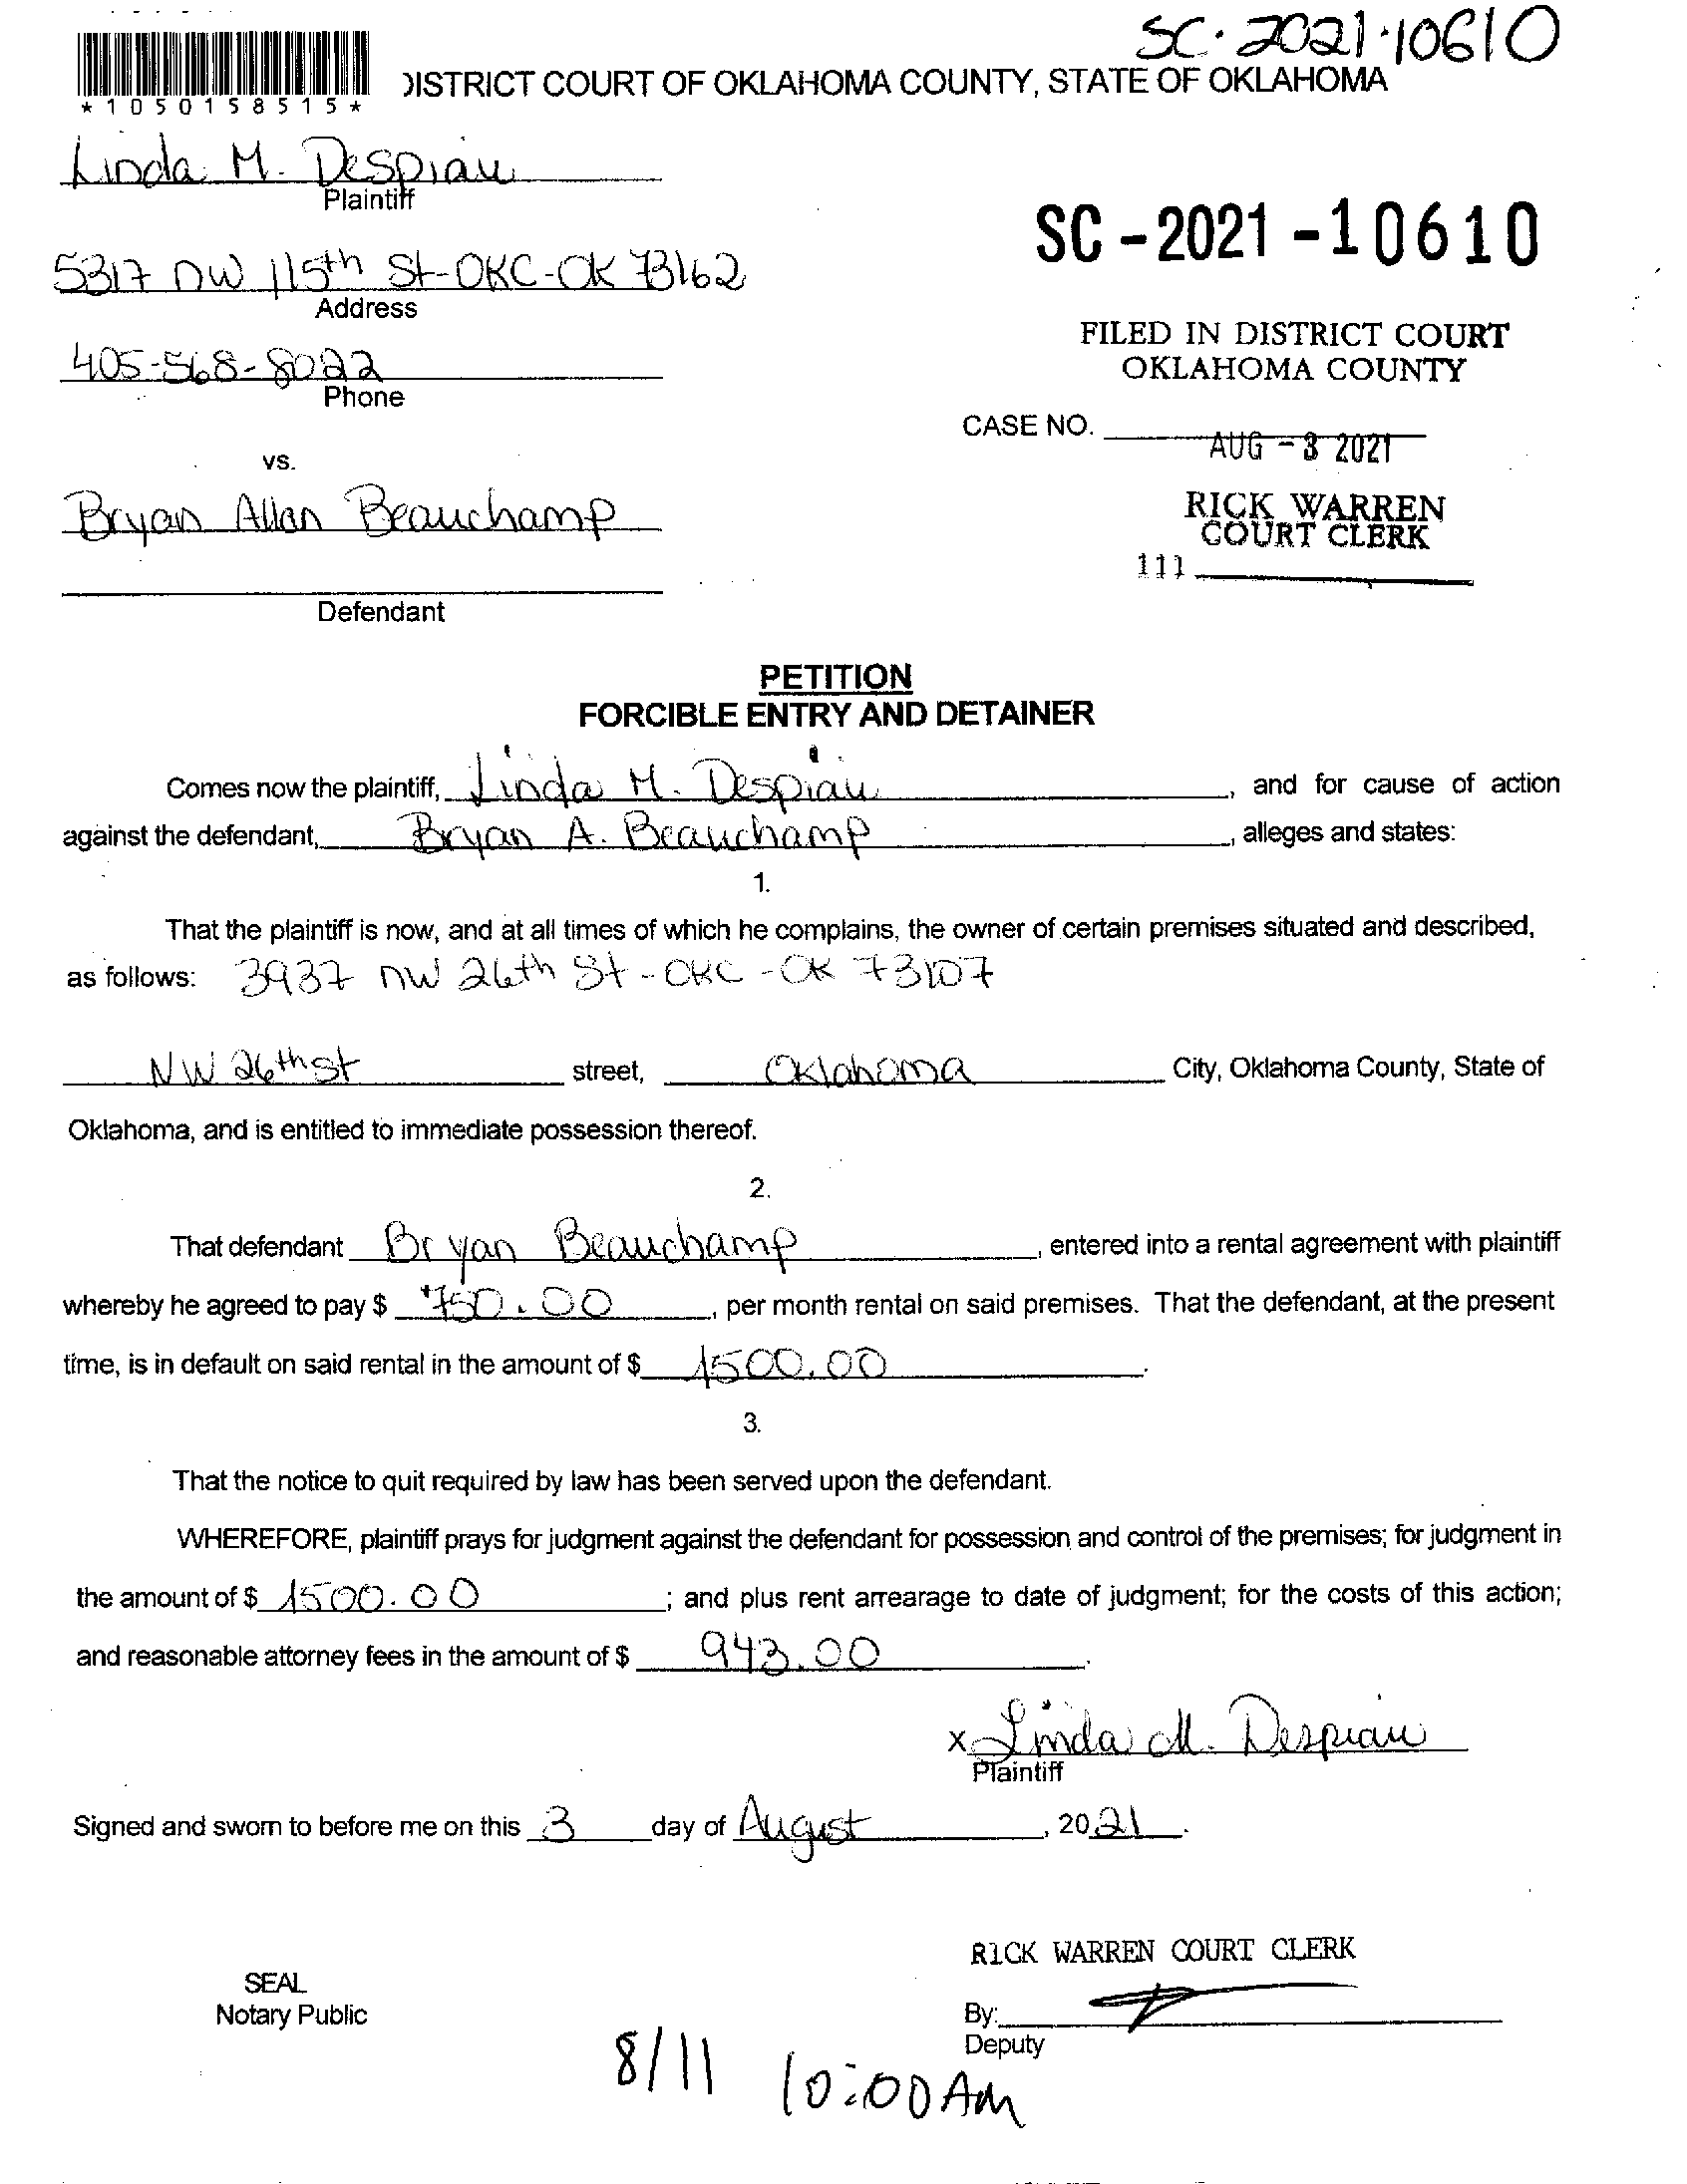 SC-2021-10610
DISTRICT COURT OF OKLAHOMA COUNTY, STATE OF OKLAHOMA
*1050158515*
Linda M. Despiau
Plaintiff
SC-2021-10610
5317 NW 115th St-OKC-OK 73162
Address
FILED IN DISTRICT COURT
OKLAHOMA COUNTY
405-568-8022
Phone
CASE NO.
AUG - 3 2021
vs.
Bryan Allan Beauchamp
RICK WARREN
COURT CLERK
111
Defendant
PETITION
FORCIBLE ENTRY AND DETAINER
Comes now the plaintiff, Linda M. Despiau, and for cause of action
against the defendant, Bryan A. Beauchamp, alleges and states:
1.
That the plaintiff is now, and at all times of which he complains, the owner of certain premises situated and described,
as follows: 3937 NW 26th St-OKC-OK 73107
NW 26th st street, Oklahoma City, Oklahoma County, State of
Oklahoma, and is entitled to immediate possession thereof.
2.
That defendant Bryan Beauchamp, entered into a rental agreement with plaintiff
whereby he agreed to pay $ 750.00, per month rental on said premises. That the defendant, at the present
time, is in default on said rental in the amount of $ 1500.00.
3.
That the notice to quit required by law has been served upon the defendant.
WHEREFORE, plaintiff prays for judgment against the defendant for possession and control of the premises; for judgment in
the amount of $ 1500.00; and plus rent arrearage to date of judgment; for the costs of this action;
and reasonable attorney fees in the amount of $ 943.00.
x Linda M. Despiau
Plaintiff
Signed and sworn to before me on this 3 day of August, 2021.
RICK WARREN COURT CLERK
SEAL
Notary Public
By:
Deputy
8/11 10:00 AM